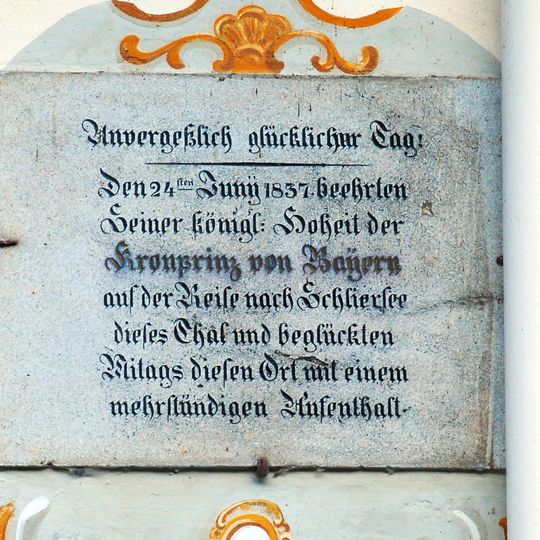 Unvergeßlich glücklicher Tag!
Den 24sten Juny 1837 beehrten
Seiner königl: Hoheit der
Kronprinz von Bayern
auf der Reise nach Schliersee
dieses Thal und beglückten
Mitags diesen Ort mit einem
mehrstündigen Aufenthalt.